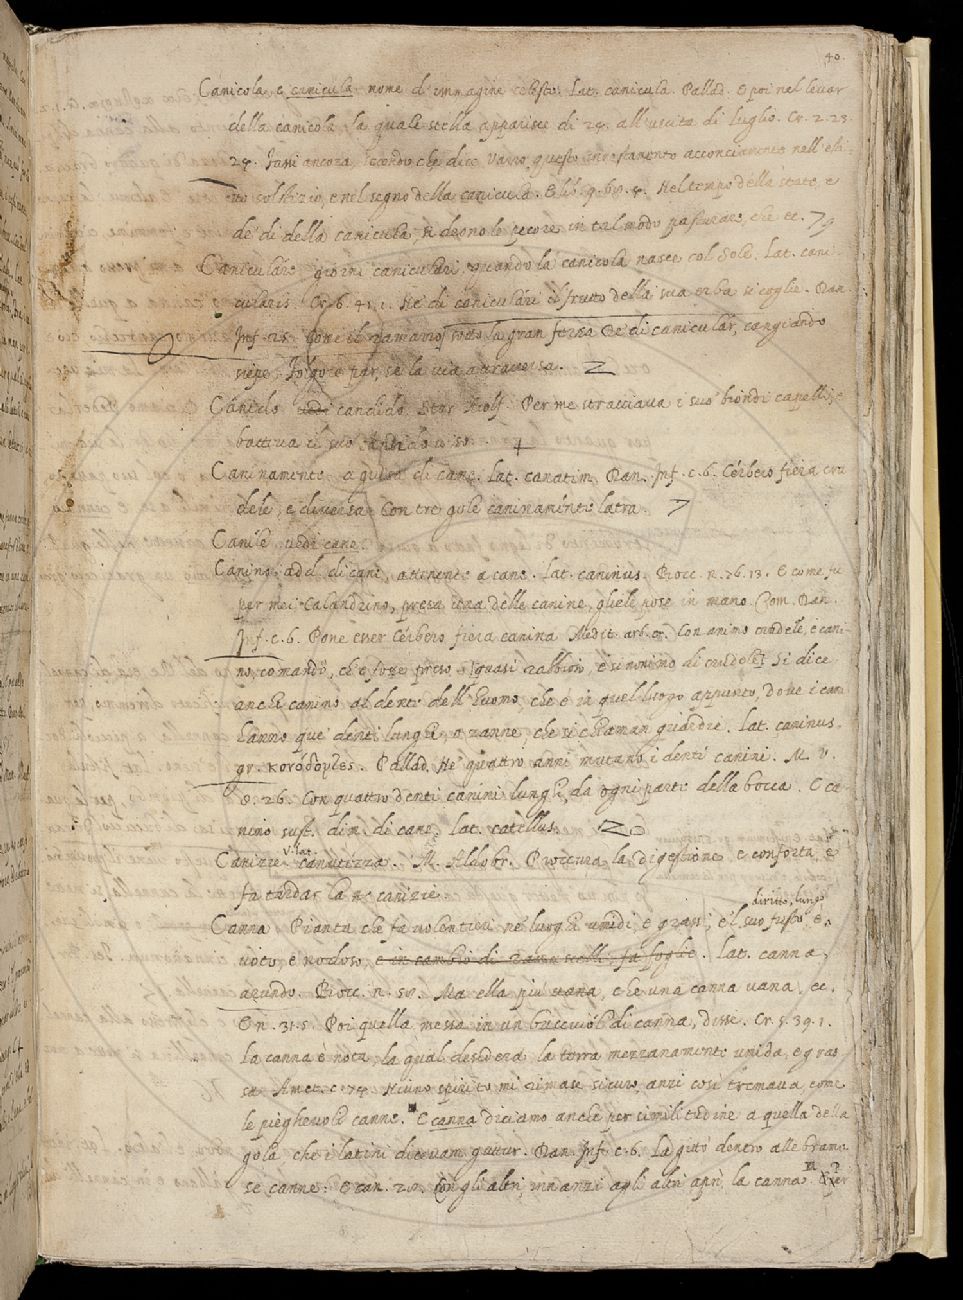 40.
Canicola, e canicula nome d'immagine celeste. Lat. canicula. Pallad. E poi nel levar
della canicola, la quale stella apparisce di 24. all'uscita di luglio. Cr. 2. 23.
24. Fassi ancora, secondo che dice Varro, questo innestamento acconciamente nell'esti-
vo solstizio, e nel segno della canicula. E lib. 9. Nel tempo della state, e
de' dì della canicula, si deono le pecore in tal modo pasturare, che ec.
Caniculare giorni caniculari, quando la canicola nasce col Sole. Lat. cani-
cularis. Cr. 6. 41. 1. Ne' dì caniculari il frutto della sua erba si coglie. Dan.
Inf. 25. Come il ramarro sotto la gran fersa De' dì canicular, cangiando
siepe, Folgore par, se la via attraversa.
Canido vedi candido. Per me stracciava i suo' biondi capelli, e
batteva il suo +
Caninamente a guisa di cane. Lat. canatim. Dan. Inf. c. 6. Cerbero fiera cru
dele, e diversa Con tre gole caninamente latra.
Canie vedi cane.
Canino add. di cane, attenente a cane. Lat. caninus. Bocc. n. 76. 13. E come fu
per mei Calandrino, presa una delle canine, gliele pose in mano Com. Dan.
Inf. c. 6. Pone esser Cerbero fiera canina Medit. arb. cr. Con animo crudele, e cani-
no, comandò, che e' fosse preso [quasi rabbioso, e sinonimo di crudele] Si dice
anche canino al dente dell'huomo, che è in quel luogo appunto, dove i cani
hanno que' denti lunghi, o zanne, che si chiaman guardie. Lat. caninus.
gr. Pallad. Ne' quattro anni mutano i denti canini. M. V.
8. 26. Con quattro denti canini lunghi, da ogni parte della bocca. E ca-
nino sust. dim. di cane, lat. catellus.
Canizie v. lat. canutezza. M. Aldobr. Proccura la digestione, e conforta, e
fa tardar la canizie.
diritto, lungo
Canna Pianta che fa volentieri ne' luoghi umidi, e grassi, e 'l suo fusto è
voto, e nodoso, e in cambio di rami fa foglie. Lat. canna,
arundo. Bocc. n. 50. Ma ella più vana, che una canna vana, ec.
E n. 31. 5. Poi quella messa in un bucciuol di canna, disse. Cr. 5. 39. 1.
La canna è nota, la qual desidera la terra mezzanamente umida, e gras-
sa Amet. c. 74. Niuno spirito mi rimase sicuro, anzi così tremava, come
le pieghevoli canne. E canna diciamo anche per similitudine a quella della
gola che i latini dicevan guttur. Dan. Inf. c. 6. La gittò dentro alle bramo-
se canne. E can. 28. Con gli altri innanzi agli altri aprì la canna.